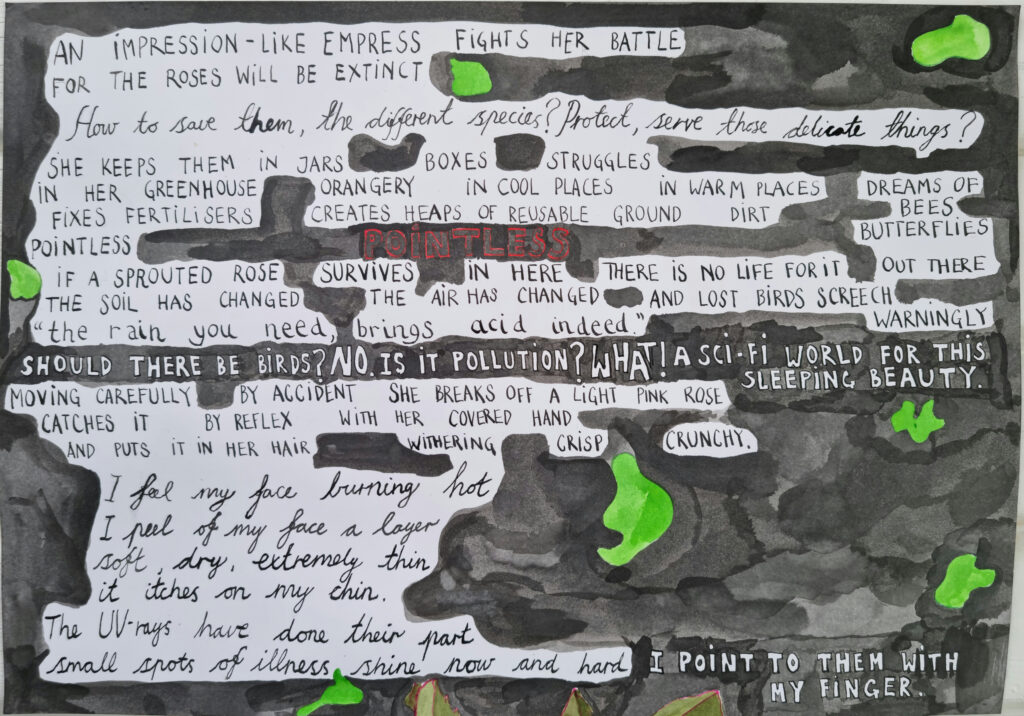 AN IMPRESSION-LIKE EMPRESS FIGHTS HER BATTLE
FOR THE ROSES WILL BE EXTINCT
How to save them, the different species? Protect, serve those delicate things?
SHE KEEPS THEM IN JARS BOXES STRUGGLES
IN HER GREENHOUSE ORANGERY IN COOL PLACES IN WARM PLACES DREAMS OF
FIXES FERTILISERS CREATES HEAPS OF REUSABLE GROUND DIRT BEES
BUTTERFLIES
POINTLESS POINTLESS
IF A SPROUTED ROSE SURVIVES IN HERE THERE IS NO LIFE FOR IT OUT THERE
THE SOIL HAS CHANGED THE AIR HAS CHANGED AND LOST BIRDS SCREECH
WARNINGLY
"the rain you need, brings acid indeed."
SHOULD THERE BE BIRDS? NO. IS IT POLLUTION? WHAT! A SCI-FI WORLD FOR THIS
SLEEPING BEAUTY.
MOVING CAREFULLY BY ACCIDENT SHE BREAKS OFF A LIGHT PINK ROSE
CATCHES IT BY REFLEX WITH HER COVERED HAND
AND PUTS IT IN HER HAIR WITHERING CRISP CRUNCHY.
I feel my face burning hot
I peel of my face a layer
soft, dry, extremely thin
it itches on my chin.
The UV-rays have done their part
small spots of illness shine now and hard
I POINT TO THEM WITH
MY FINGER.